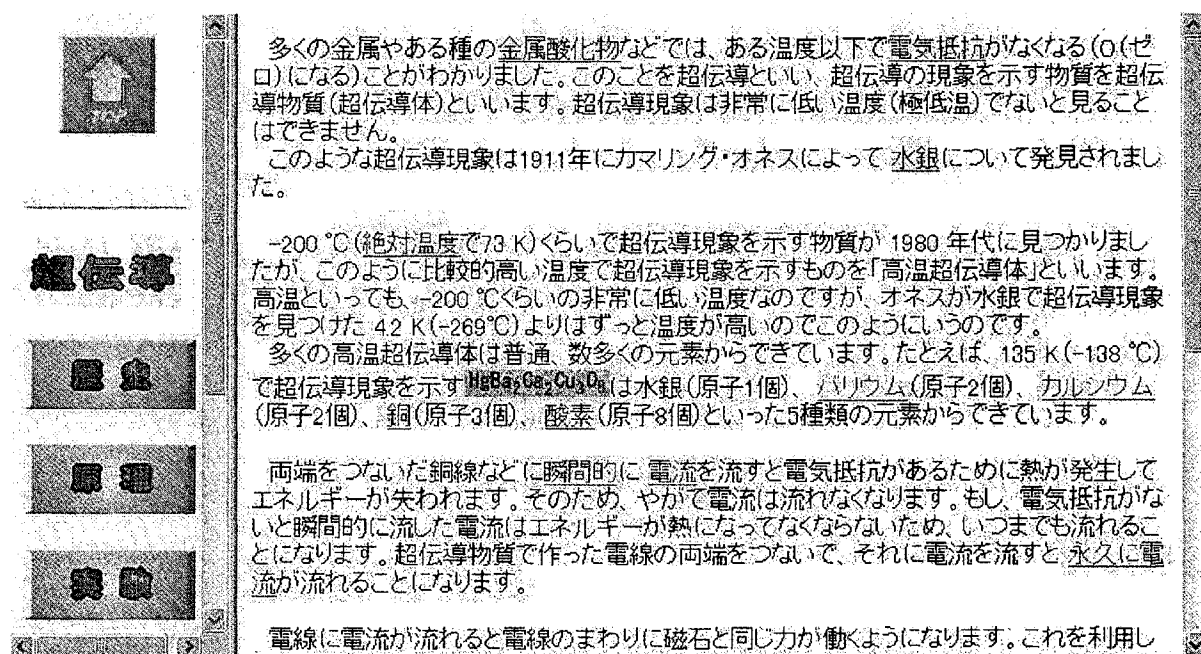 TOP
超伝導
歴史
原理
実験
多くの金属やある種の金属酸化物などでは、ある温度以下で電気抵抗がなくなる(0(ゼ
ロ)になる)ことがわかりました。このことを超伝導といい、超伝導の現象を示す物質を超伝
導物質(超伝導体)といいます。超伝導現象は非常に低い温度(極低温)でないと見ること
はできません。
このような超伝導現象は1911年にカマリング・オネスによって 水銀について発見されまし
た。
-200 ℃(絶対温度で73 K)くらいで超伝導現象を示す物質が 1980 年代に見つかりまし
たが、このように比較的高い温度で超伝導現象を示すものを「高温超伝導体」といいます。
高温といっても、-200 ℃くらいの非常に低い温度なのですが、オネスが水銀で超伝導現象
を見つけた 4.2 K(-269℃)よりはずっと温度が高いのでこのようにいうのです。
多くの高温超伝導体は普通、数多くの元素からできています。たとえば、135 K(-138 ℃)
で超伝導現象を示すHgBa₂Ca₂Cu₃O₈は水銀(原子1個)、バリウム(原子2個)、カルシウム
(原子2個)、銅(原子3個)、酸素(原子8個)といった5種類の元素からできています。
両端をつないだ銅線などに瞬間的に 電流を流すと電気抵抗があるために熱が発生して
エネルギーが失われます。そのため、やがて電流は流れなくなります。もし、電気抵抗がな
いと瞬間的に流した電流はエネルギーが熱になってなくならないため、いつまでも流れるこ
とになります。超伝導物質で作った電線の両端をつないで、それに電流を流すと 永久に電
流が流れることになります。
電線に電流が流れると電線のまわりに磁石と同じ力が働くようになります。これを利用し